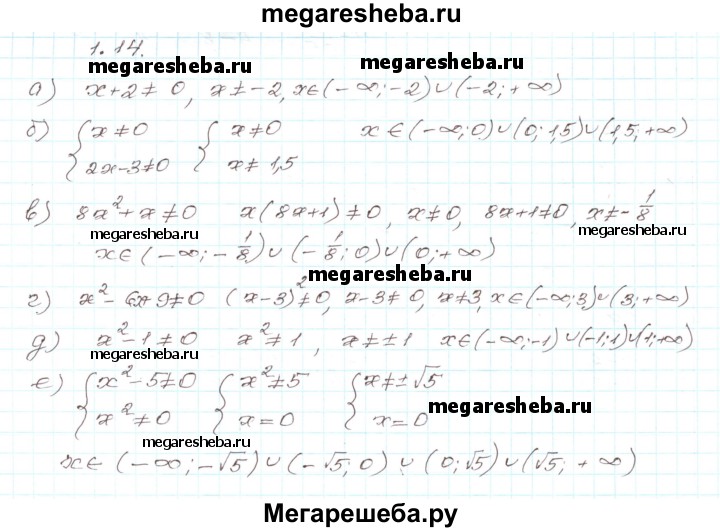 megaresheba.ru
1.14.
megaresheba.ru
а) x+2≠0, x≠-2, x∈(-∞;-2)∪(-2;+∞)
б) { x≠0 { x≠0 x∈(-∞;0)∪(0;1,5)∪(1,5;+∞)
2x-3≠0 x≠1,5
в) 8x²+x≠0 x(8x+1)≠0, x≠0, 8x+1≠0, x≠-1/8
megaresheba.ru megaresheba.ru
x∈(-∞;-1/8)∪(-1/8;0)∪(0;+∞)
megaresheba.ru
г) x²-6x+9≠0 (x-3)²≠0, x-3≠0, x≠3, x∈(-∞;3)∪(3;+∞)
д) x²-1≠0 x²≠1, x≠±1 x∈(-∞;-1)∪(-1;1)∪(1;+∞)
megaresheba.ru
е) { x²-5≠0 { x²≠5 { x≠±√5
x²≠0 x=0 x=0
megaresheba.ru
megaresheba.ru
x∈(-∞;-√5)∪(-√5;0)∪(0;√5)∪(√5;+∞)
Мегарешеба.ру